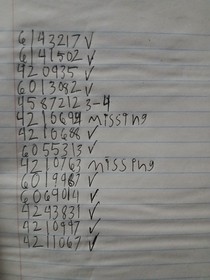 6143217 ✓
6141502 ✓
4210935 ✓
6013082 ✓
4587212 3-4
4210694 missing
4210688 ✓
6055313 ✓
4210763 missing
6019987 ✓
6069014 ✓
4243831 ✓
4210997 ✓
4211067 ✓